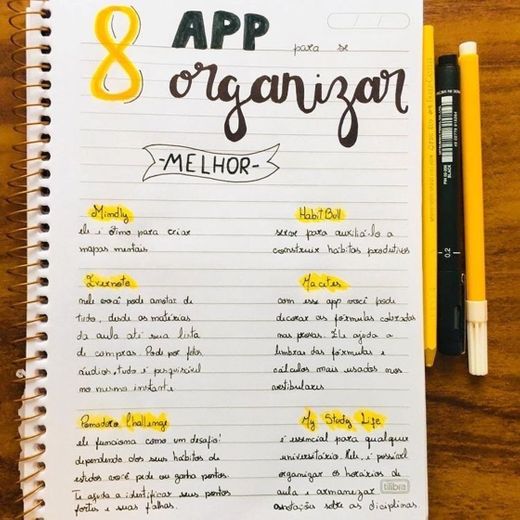 8 APP para se
organizar
MELHOR
Mindly
ele é ótimo para criar
mapas mentais.
HabitBull
serve para auxiliá-lo a
construir hábitos produtivos
Evernote
nele você pode anotar de
tudo, desde as matérias
da aula até sua lista
de compras. Pode por fotos
áudios, tudo é pesquisável
no mesmo instante
Macetes
com esse app você pode
decorar as fórmulas cobradas
nas provas. Ele ajuda a
lembrar das fórmulas e
cálculos mais usados nos
vestibulares
Pomodoro Challenge
ele funciona como um desafio!
dependendo dos seus hábitos de
estudos você pode ou ganha pontos.
Te ajuda a identificar seus pontos
fortes e suas falhas.
My Study Life
é essencial para qualquer
universitário. Nele, é possível
organizar os horários de
aula e armazenar
anotação sobre as disciplinas
tilibra
0.2
BLACK